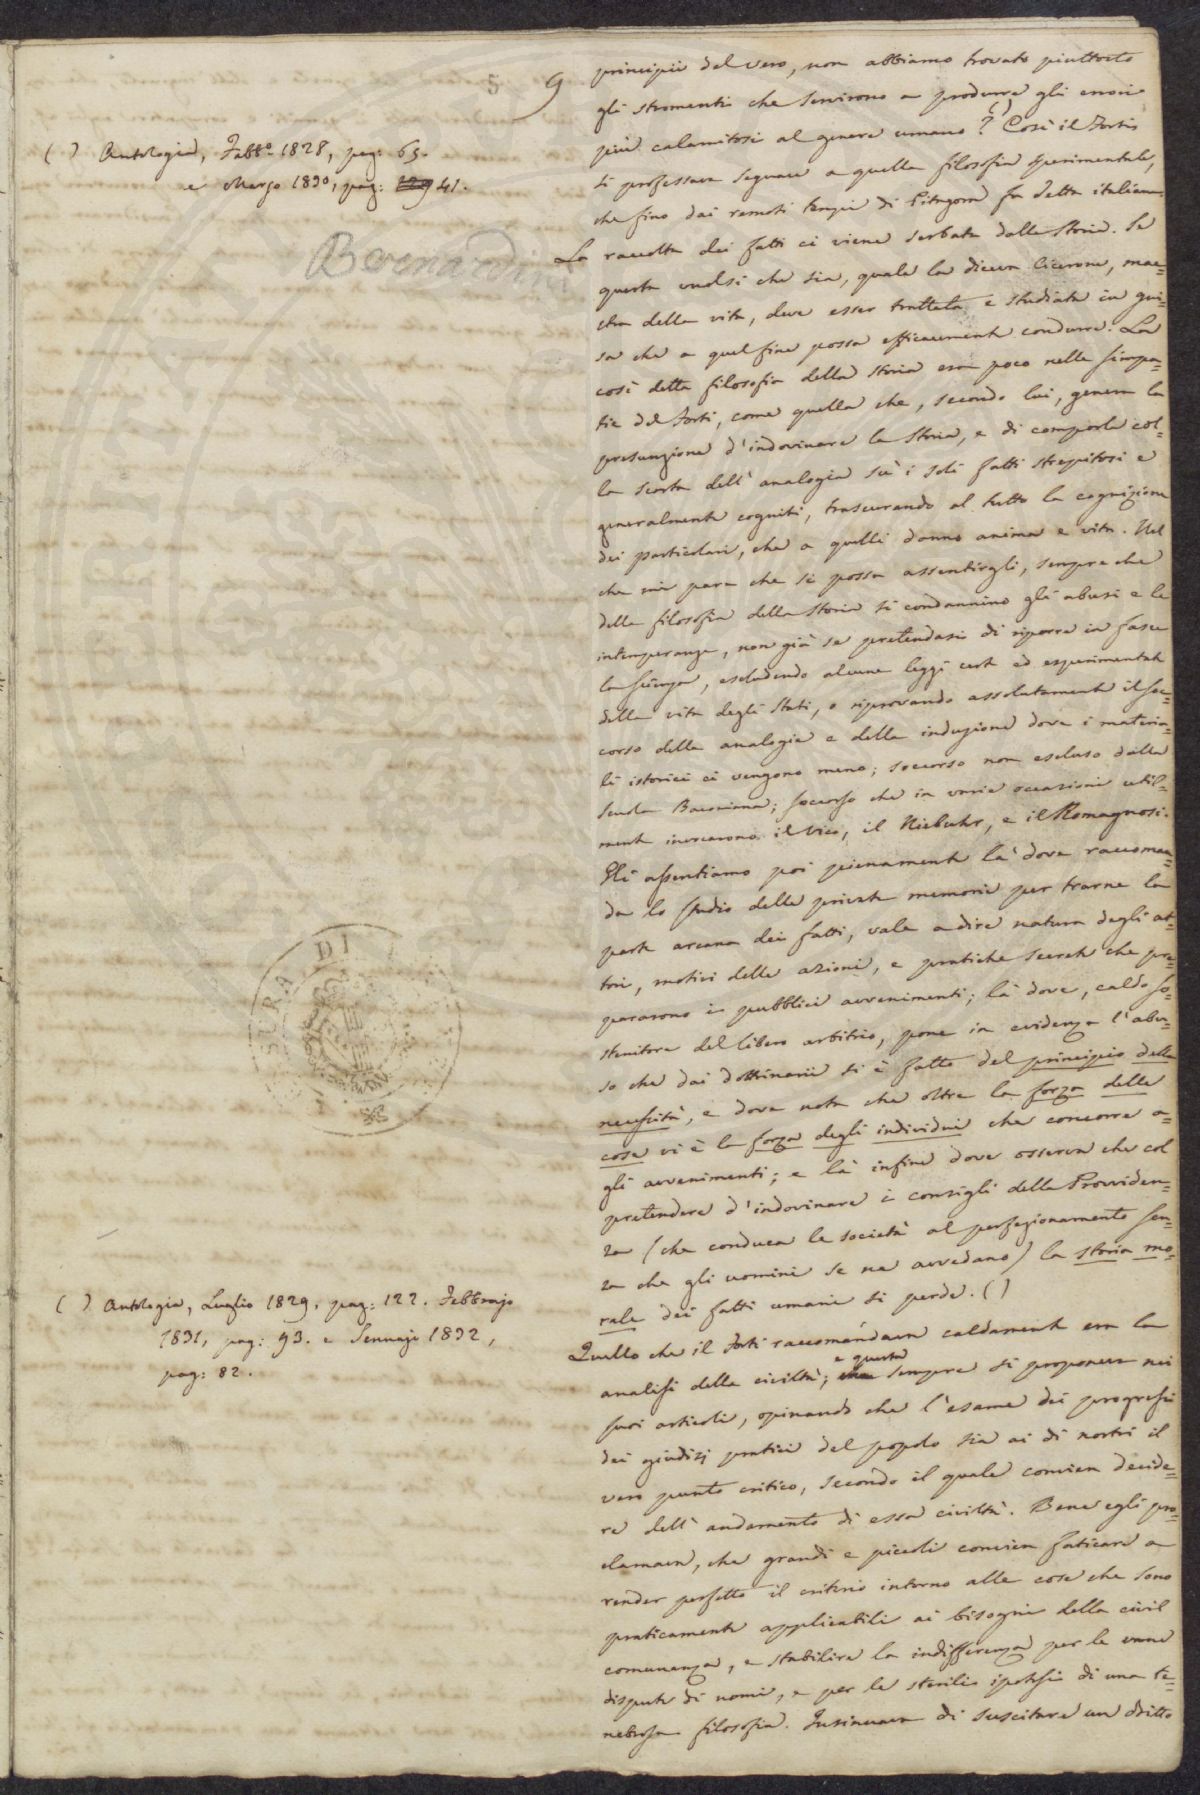 5 9
( ) Antologia, Febb.° 1828, pag: 65.
e Marzo 1830, pag: 41.
Bernardini
principii del vero, non abbiamo trovato piuttosto
gli strumenti che servirono a produrre gli errori
più calamitosi al genere umano? ( ) Così il Forti
si professava seguace a quella filosofia sperimentale,
che fino dai remoti tempi di Pitagora fu detta italiana.
La raccolta dei fatti ci viene serbata dalla Storia. Se
questa vuolsi che sia, quale la diceva Cicerone, mae=
stra della vita, deve esser trattata e studiata in gui=
sa che a quel fine possa efficacemente condurre. La
così detta filosofia della Storia era poco nelle simpa=
tie del Forti, come quella che, secondo lui, genera la
presunzione d'indovinare la Storia, e di comporla col=
la scorta dell'analogia su i soli fatti strepitosi e
generalmente cogniti, trascurando al tutto la cognizione
dei particolari, che a quelli danno anima e vita. Nel
che mi pare che si possa assentirgli, sempre che
della filosofia della Storia si condannino gli abusi e le
intemperanze, non già se pretendasi di riporre in fasce
la scienza, escludendo alcune leggi certe ed esperimentate
della vita degli Stati, o riprovando assolutamente il soc=
corso della analogia e della induzione dove i materia=
li istorici ci vengono meno; soccorso non escluso dalla
scuola Baconiana; soccorso che in varie occasioni util=
mente invocarono il Vico, il Niebuhr, e il Romagnosi.
Gli assentiamo poi pienamente là dove raccoman=
da lo studio delle private memorie per trarne la
parte arcana dei fatti, vale a dire natura degli at=
tori, motivi delle azioni, e pratiche secrete che pre=
pararono i pubblici avvenimenti; là dove, caldo so=
stenitore del libero arbitrio, pone in evidenza l'abu=
so che dai dottrinarii si è fatto del principio della
necessità, e dove nota che oltre la forza delle
cose vi è la forza degli individui che concorre a=
gli avvenimenti; e là infine dove osserva che col
pretendere d'indovinare i consigli della Provviden=
za (che conduca le società al perfezionamento sen=
za che gli uomini se ne avvedano) la storia mo=
rale dei fatti umani si perde. ( )
( ) Antologia, Luglio 1829, pag: 122. Febbrajo
1831, pag: 93. e Gennajo 1832,
pag: 82.
Quello che il Forti raccomandava caldamente era la
analisi della civiltà; e questa sempre si proponeva nei
suoi articoli, opinando che l'esame dei progressi
dei giudizj pratici del popolo sia ai dì nostri il
vero punto critico, secondo il quale convien decide=
re dell'andamento di essa civiltà. Bene egli pro=
clamava, che grandi e piccoli convien faticare a
render perfetto il criterio intorno alle cose che sono
praticamente applicabili ai bisogni della civil
comunanza, e stabilire la indifferenza per le vane
dispute di nomi, e per le sterili ipotesi di una te=
nebrosa filosofia. Insinuava di suscitare un dritto
SURA DI